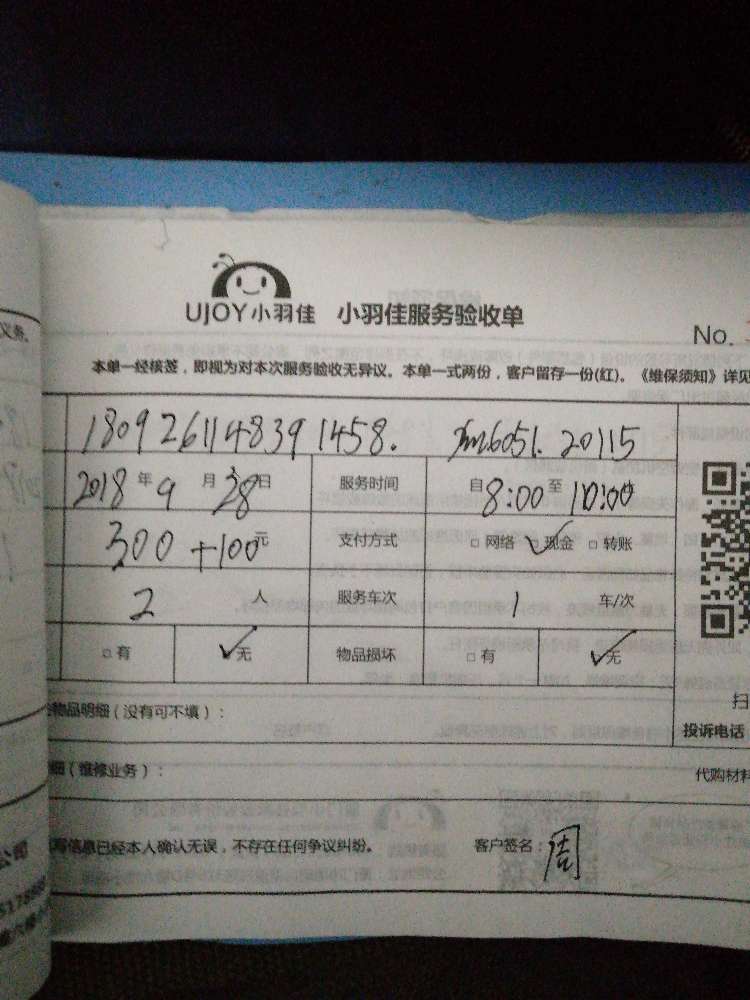 义务。
UJOY小羽佳 小羽佳服务验收单
No.
本单一经核签，即视为对本次服务验收无异议。本单一式两份，客户留存一份(红)。《维保须知》详见
180926114839 1458. xm6051. 20115
2018年9月28日 服务时间 自8:00至10:00
300+100元 支付方式 □网络 ✓现金 □转账
2人 服务车次 1车/次
□有 ✓无 物品损坏 □有 ✓无
扫
物品明细（没有可不填）：
投诉电话
细（维修业务）：
代购材料
写信息已经本人确认无误，不存在任何争议纠纷。 客户签名：周
公司